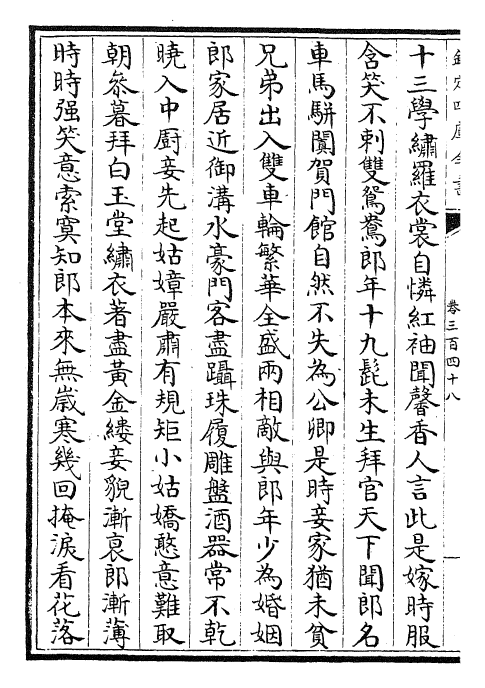 欽定四庫全書
卷三百四十八
十三學繡羅衣裳自憐紅袖聞馨香人言此是嫁時服
含笑不刺雙鴛鴦郎年十九髭未生拜官天下聞郎名
車馬駢闐賀門館自然不失為公卿是時妾家猶未貧
兄弟出入雙車輪繁華全盛兩相敵與郎年少為婚姻
郎家居近御溝水豪門客盡躡珠履雕盤酒器常不乾
曉入中廚妾先起姑嫜嚴肅有規矩小姑嬌憨意難取
朝參暮拜白玉堂繡衣著盡黃金縷妾貌漸衰郎漸薄
時時强笑意索寞知郎本來無歲寒幾回掩淚看花落